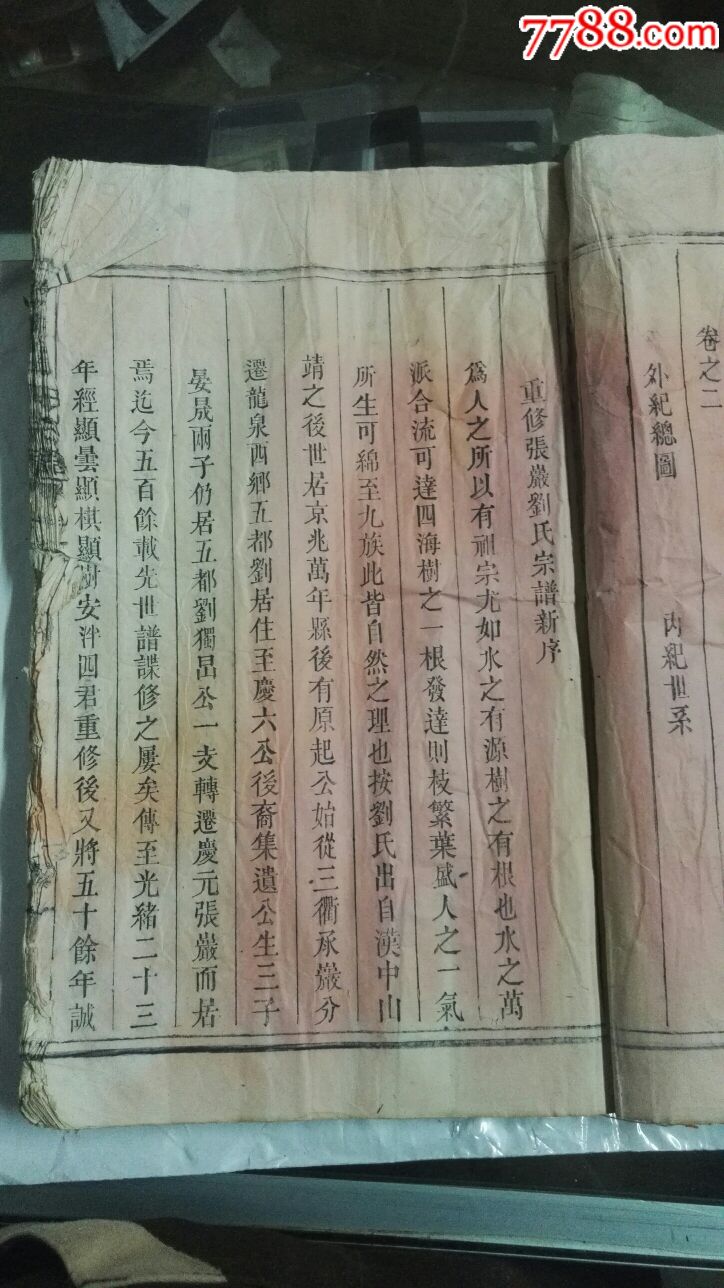 7788.com
卷之二
外紀總圖 內紀世系
重修張巖劉氏宗譜新序
為人之所以有祖宗尤如水之有源樹之有根也水之萬
派合流可達四海樹之一根發達則枝繁葉盛人之一氣
所生可綿至九族此皆自然之理也按劉氏出自漢中山
靖之後世居京兆萬年縣後有原起公始從三衢承巖分
遷龍泉西鄉五都劉居住至慶六公後裔集遺公生三子
晏晟兩子仍居五都劉獨昌公一支轉遷慶元張巖而居
焉迄今五百餘載先世譜諜修之屢矣傳至光緒二十三
年經顯曇顯棋顯樹安泮四君重修後又將五十餘年誠